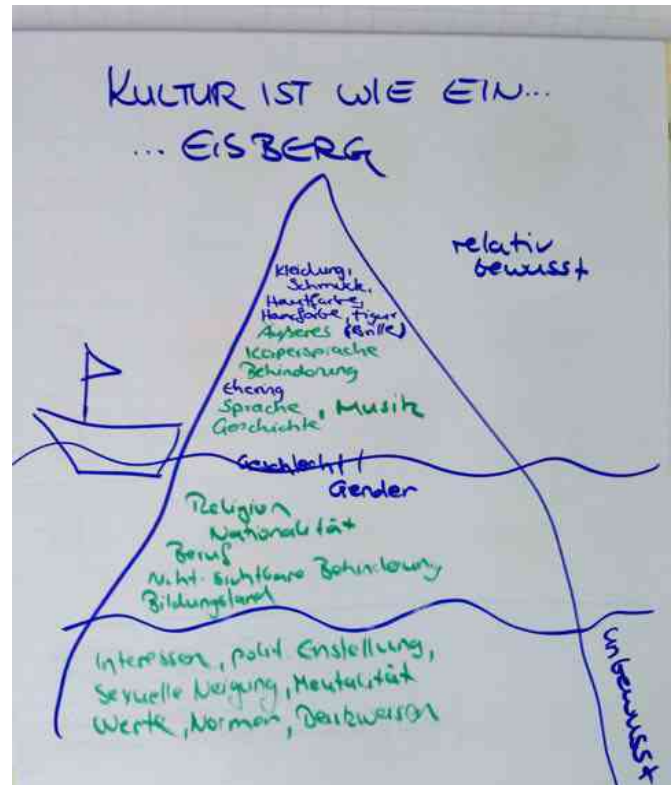 KULTUR IST WIE EIN...
... EISBERG
relativ
bewusst
Kleidung,
Schmuck,
Hautfarbe,
Haarfarbe, Figur
Äußeres (Brille)
Körpersprache
Behinderung
Ehering
Sprache, Musik
Geschichte
Geschlecht /
Gender
Religion
Nationalität
Beruf
Nicht-sichtbare Behinderung
Bildungsstand
Interessen, polit Einstellung,
Sexuelle Neigung, Mentalität
Werte, Normen, Denkweisen
unbewusst